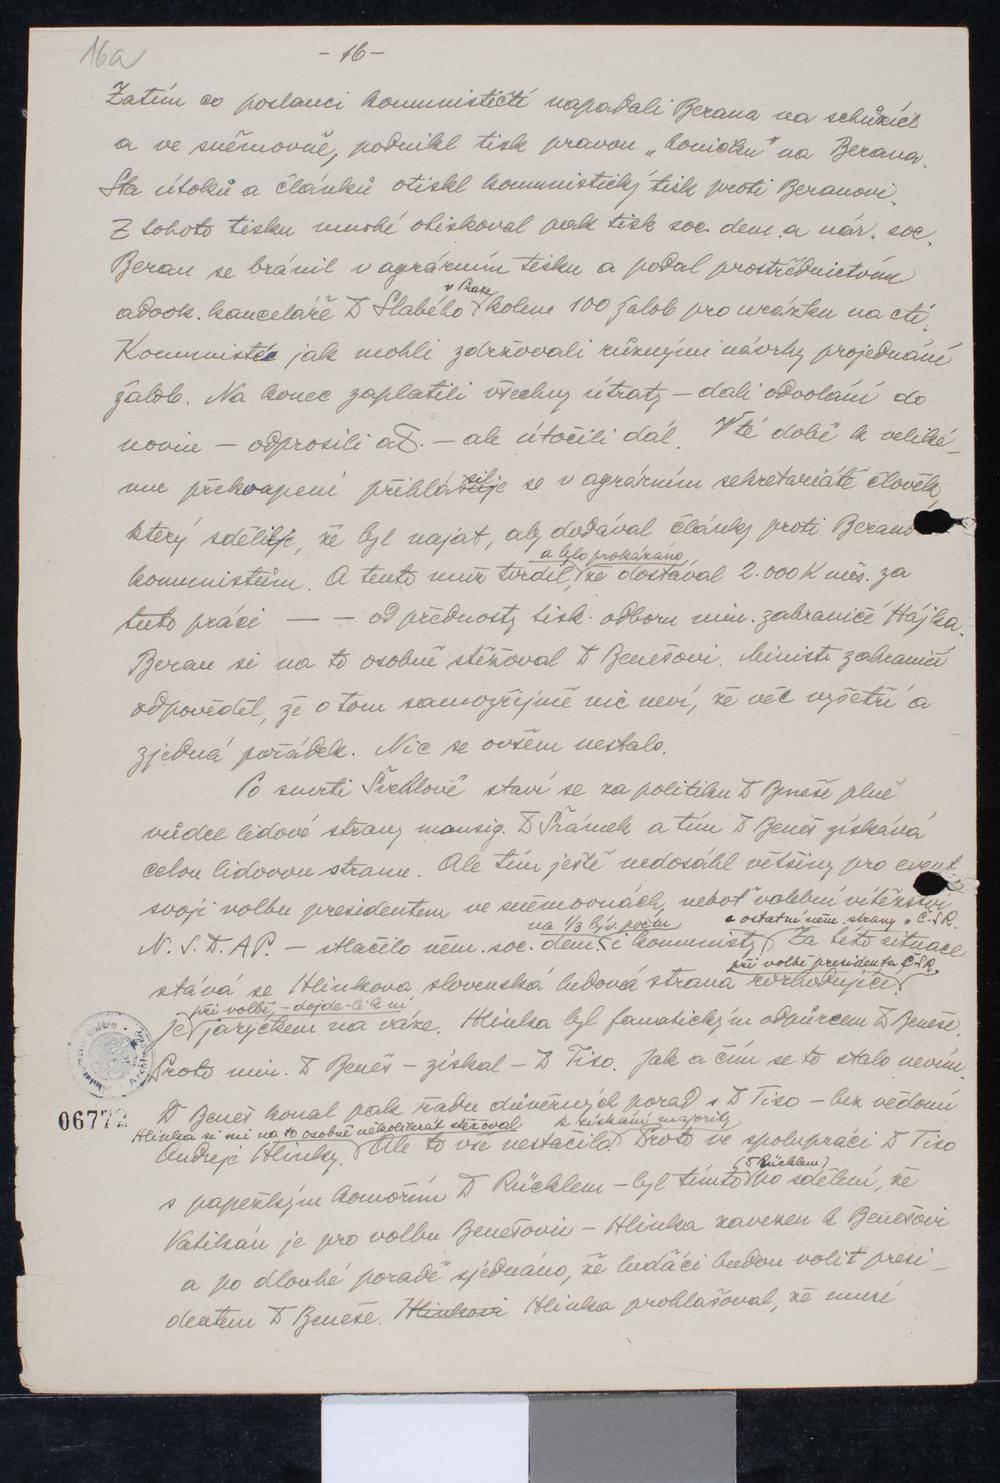 16a
- 16 -
Zatím co poslanci komunističtí napadali Berana na schůzích
a ve sněmovně, podnikl tisk pravou „honičku" na Berana.
Sta útoků a článků otiskl komunistický tisk proti Beranovi.
Z tohoto tisku mnohé otiskoval pak tisk soc. dem. a nár. soc.
Beran se bránil v agrárním tisku a podal prostřednictvím
advok. kanceláře D Slabého v Praze kolem 100 žalob pro urážku na cti.
Komunisté jak mohli zdržovali různými návrhy projednání
žalob. Na konec zaplatili všechny útraty — dali odvolání do
novin — odprosili atd. — ale útočili dál. V té době k veliké-
mu překvapení přihlásil se v agrárním sekretariátě člověk,
který sdělil, že byl najat, aby dodával články proti Beranovi
a bylo prokázáno,
komunistům. A tento muž tvrdil, že dostával 2.000 K měs. za
tuto práci — — od přednosty tisk. odboru min. zahraničí Hájka.
Beran si na to osobně stěžoval D Benešovi. Ministr zahraničí
odpověděl, že o tom samozřejmě nic neví, že věc vyšetří a
zjedná pořádek. Nic se ovšem nestalo.
Po smrti Švehlově staví se za politiku D Beneše plně
vůdce lidové strany monsig. D Šrámek a tím D Beneš získává
celou lidovou stranu. Ale tím ještě nedosáhl většiny pro event.
svoji volbu presidentem ve sněmovnách, neboť volební vítězství
na 1/3 býv. počtu a ostatní něm. strany v Č.S.R.
N.S.D.A.P. — stlačilo něm. soc. dem. i komunisty. Za této situace
při volbě presidenta ČSR
stává se Hlinkova slovenská ludová strana rozhodující.
při volbě, - dojde-li k ní
Je jazýčkem na váze. Hlinka byl fanatickým odpůrcem D Beneše.
Proto min. D Beneš — získal — D Tiso. Jak a čím se to stalo nevím.
06772
D Beneš konal pak řadu důvěrných porad s D Tiso — bez vědomí
Hlinka si mi na to osobně několikrát stěžoval k získání majority
Andreje Hlinky. Ale to vše nestačilo. Proto ve spolupráci D Tiso
(D Rücklem)
s papežským komořím D Rücklem — byl tímto po sdělení, že
Vatikán je pro volbu Benešovu — Hlinka zavezen k Benešovi
a po dlouhé poradě sjednáno, že luďáci budou volit presi-
dentem D Beneše. Hlinkovi Hlinka prohlašoval, že musí